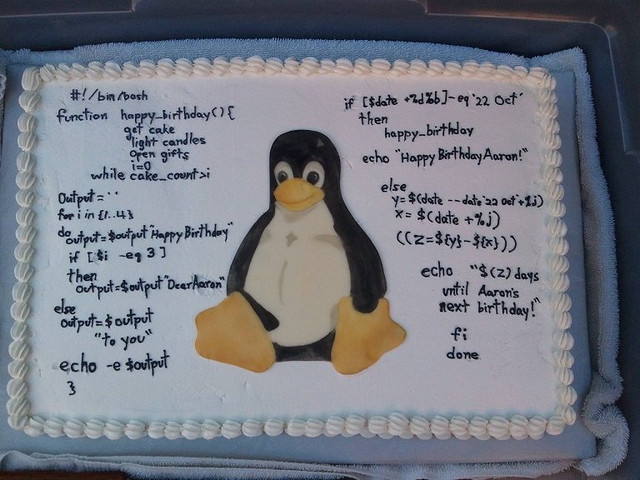 #!/bin/bash
function happy_birthday() {
get cake
light candles
open gifts
i=0
while cake_count>i
Output=' '
for i in {1..4}
do output=$output"Happy Birthday"
if [ $i -eq 3 ]
then
output=$output"DearAaron"
else
output=$output
"to you"
echo -e $output
}
if [$date +%d%b]-eq '22 Oct'
then
happy_birthday
echo "Happy Birthday Aaron!"
else
y=$(date --date'22 oct'+%j)
x= $(date +%j)
((z=${y}-${x}))
echo "$(z) days
until Aaron's
next birthday!"
fi
done